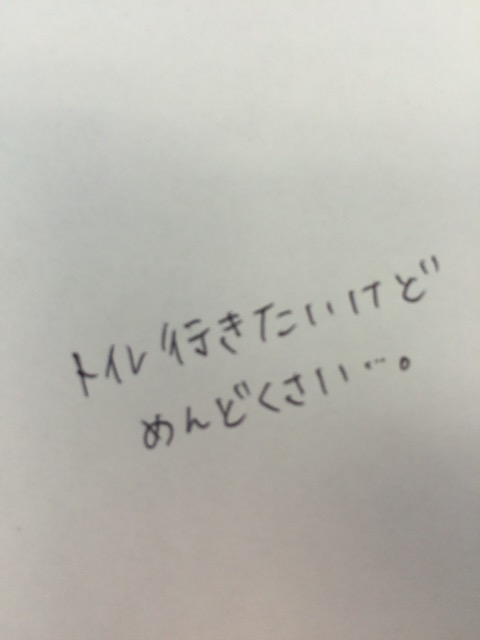 トイレ行きたいけど
めんどくさい…。